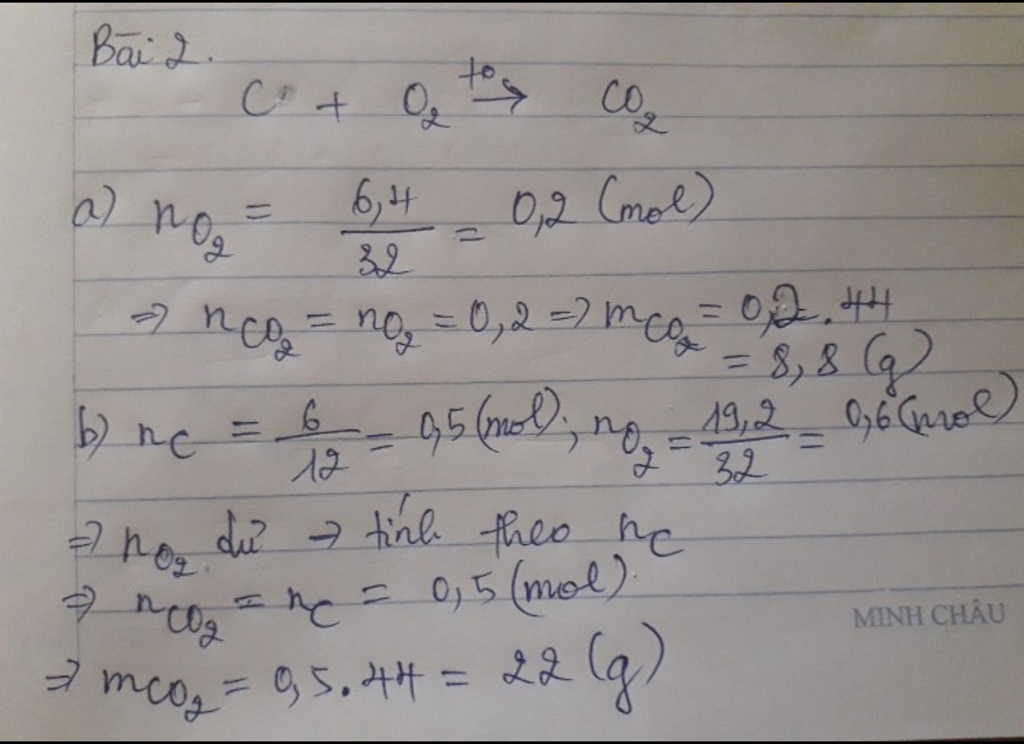 Bài 2.
C + O₂ t° → CO₂
a) nO₂ = 6,4/32 = 0,2 (mol)
⇒ nCO₂ = nO₂ = 0,2 ⇒ mCO₂ = 0,2.44
= 8,8 (g)
b) nC = 6/12 = 0,5 (mol); nO₂ = 19,2/32 = 0,6 (mol)
⇒ nO₂ dư → tính theo nC
⇒ nCO₂ = nC = 0,5 (mol).
MINH CHÂU
⇒ mCO₂ = 0,5.44 = 22 (g)